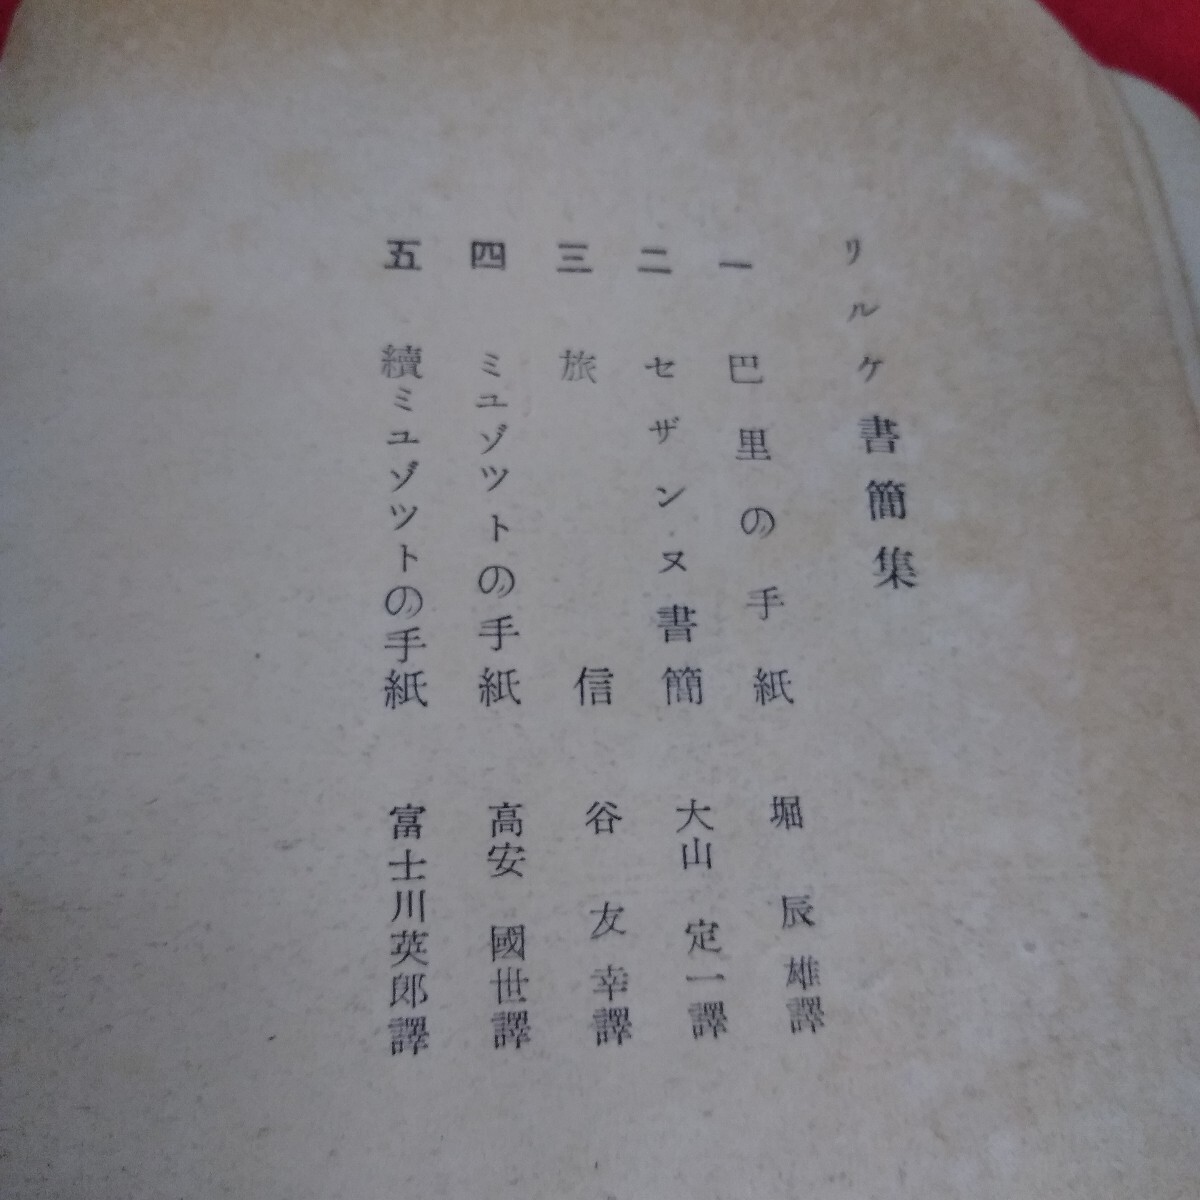 リルケ書簡集
一 巴里の手紙 堀辰雄譯
二 セザンヌ書簡 大山定一譯
三 旅信 谷友幸譯
四 ミユゾツトの手紙 高安國世譯
五 續ミユゾツトの手紙 富士川英郎譯